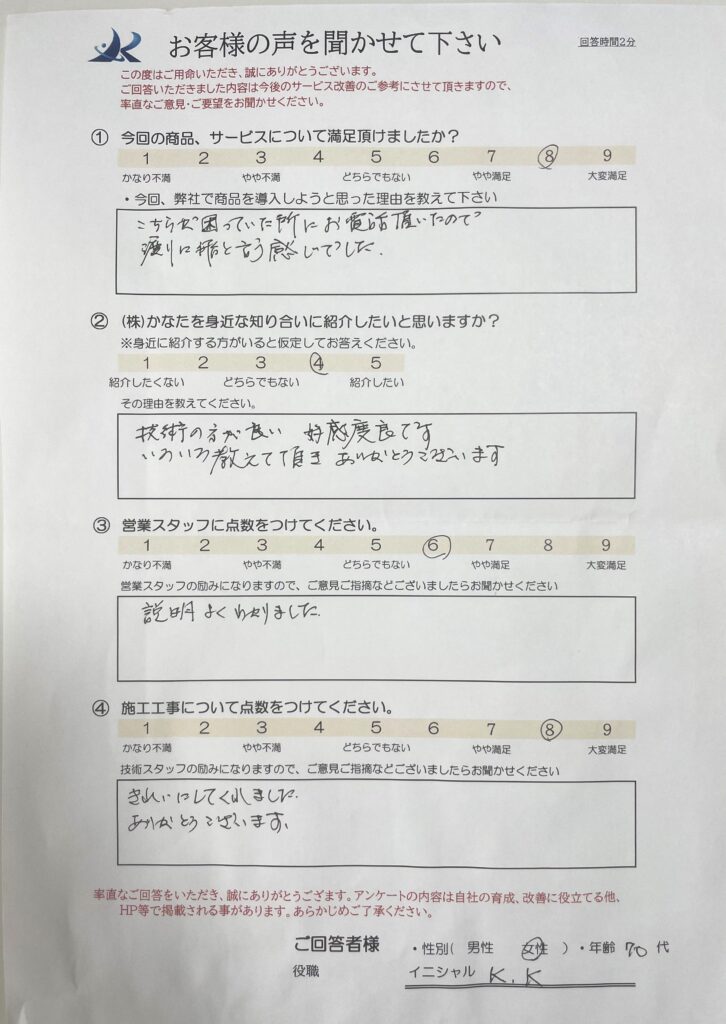 お客様の声を聞かせて下さい
回答時間2分
この度はご用命いただき、誠にありがとうございます。
ご回答いただきました内容は今後のサービス改善のご参考にさせて頂きますので、
率直なご意見・ご要望をお聞かせください。
① 今回の商品、サービスについて満足頂けましたか？
1 2 3 4 5 6 7 8 9
かなり不満 やや不満 どちらでもない やや満足 大変満足
・今回、弊社で商品を導入しようと思った理由を教えて下さい
こちらが困っていた所にお電話頂いたので
渡りに船と言う感じでした.
② (株)かなたを身近な知り合いに紹介したいと思いますか？
※身近に紹介する方がいると仮定してお答えください。
1 2 3 4 5
紹介したくない どちらでもない 紹介したい
その理由を教えてください。
技術の方が良い 好感度良です
いろいろ教えて頂き ありがとうございます
③ 営業スタッフに点数をつけてください。
1 2 3 4 5 6 7 8 9
かなり不満 やや不満 どちらでもない やや満足 大変満足
営業スタッフの励みになりますので、ご意見ご指摘などございましたらお聞かせください
説明よくわかりました.
④ 施工工事について点数をつけてください。
1 2 3 4 5 6 7 8 9
かなり不満 やや不満 どちらでもない やや満足 大変満足
技術スタッフの励みになりますので、ご意見ご指摘などございましたらお聞かせください
きれいにしてくれました.
ありがとうございます.
率直なご回答をいただき、誠にありがとうござます。アンケートの内容は自社の育成、改善に役立てる他、
HP等で掲載される事があります。あらかじめご了承ください。
ご回答者様 ・性別( 男性 女性 )・年齢 70 代
役職 イニシャル K.K